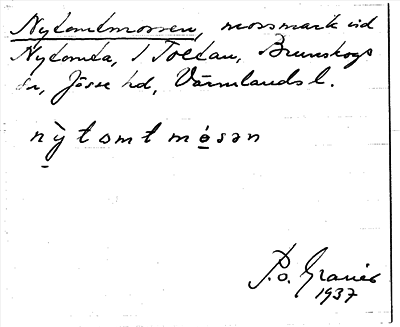 Nytomtmossen, mossmark vid
Nytomta, i Tollan, Brunskogs
sn, Jösse hd, Värmlands l.
nỳtomtmósən
P.o. Granér
1937